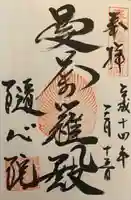 奉拝
平成十四年
二月十三日
曼荼羅殿
随心院